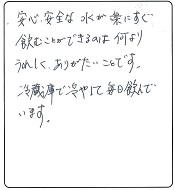 安心、安全な水が楽にすぐ
飲むことができるのは何より
うれしく、ありがたいことです。
冷蔵庫で冷やして毎日飲んで
います。